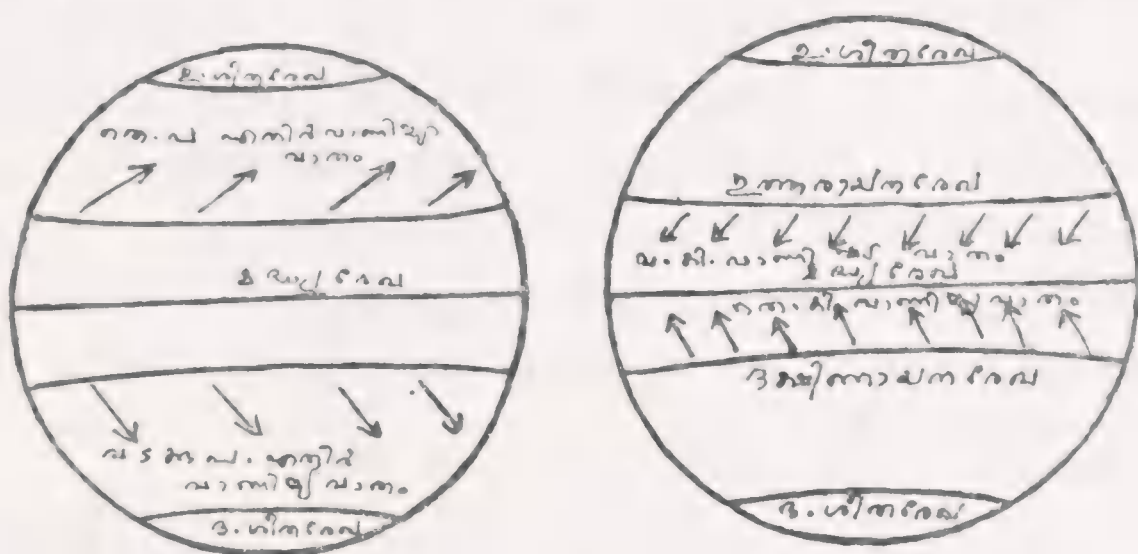 ഉ. ശീതരേഖ
തെ. പ എതിർവാണിജ്യ
വാതം
മദ്ധ്യരേഖ
വടക്കുപ. എതിർ
വാണിജ്യവാതം
ദ. ശീതരേഖ
ഉ. ശീതരേഖ
ഉത്തരായനരേഖ
വ. കി. വാണിജ്യ വാതം
മദ്ധ്യരേഖ
തെ. കി. വാണിജ്യ വാതം
ദക്ഷിണായനരേഖ
ദ. ശീതരേഖ